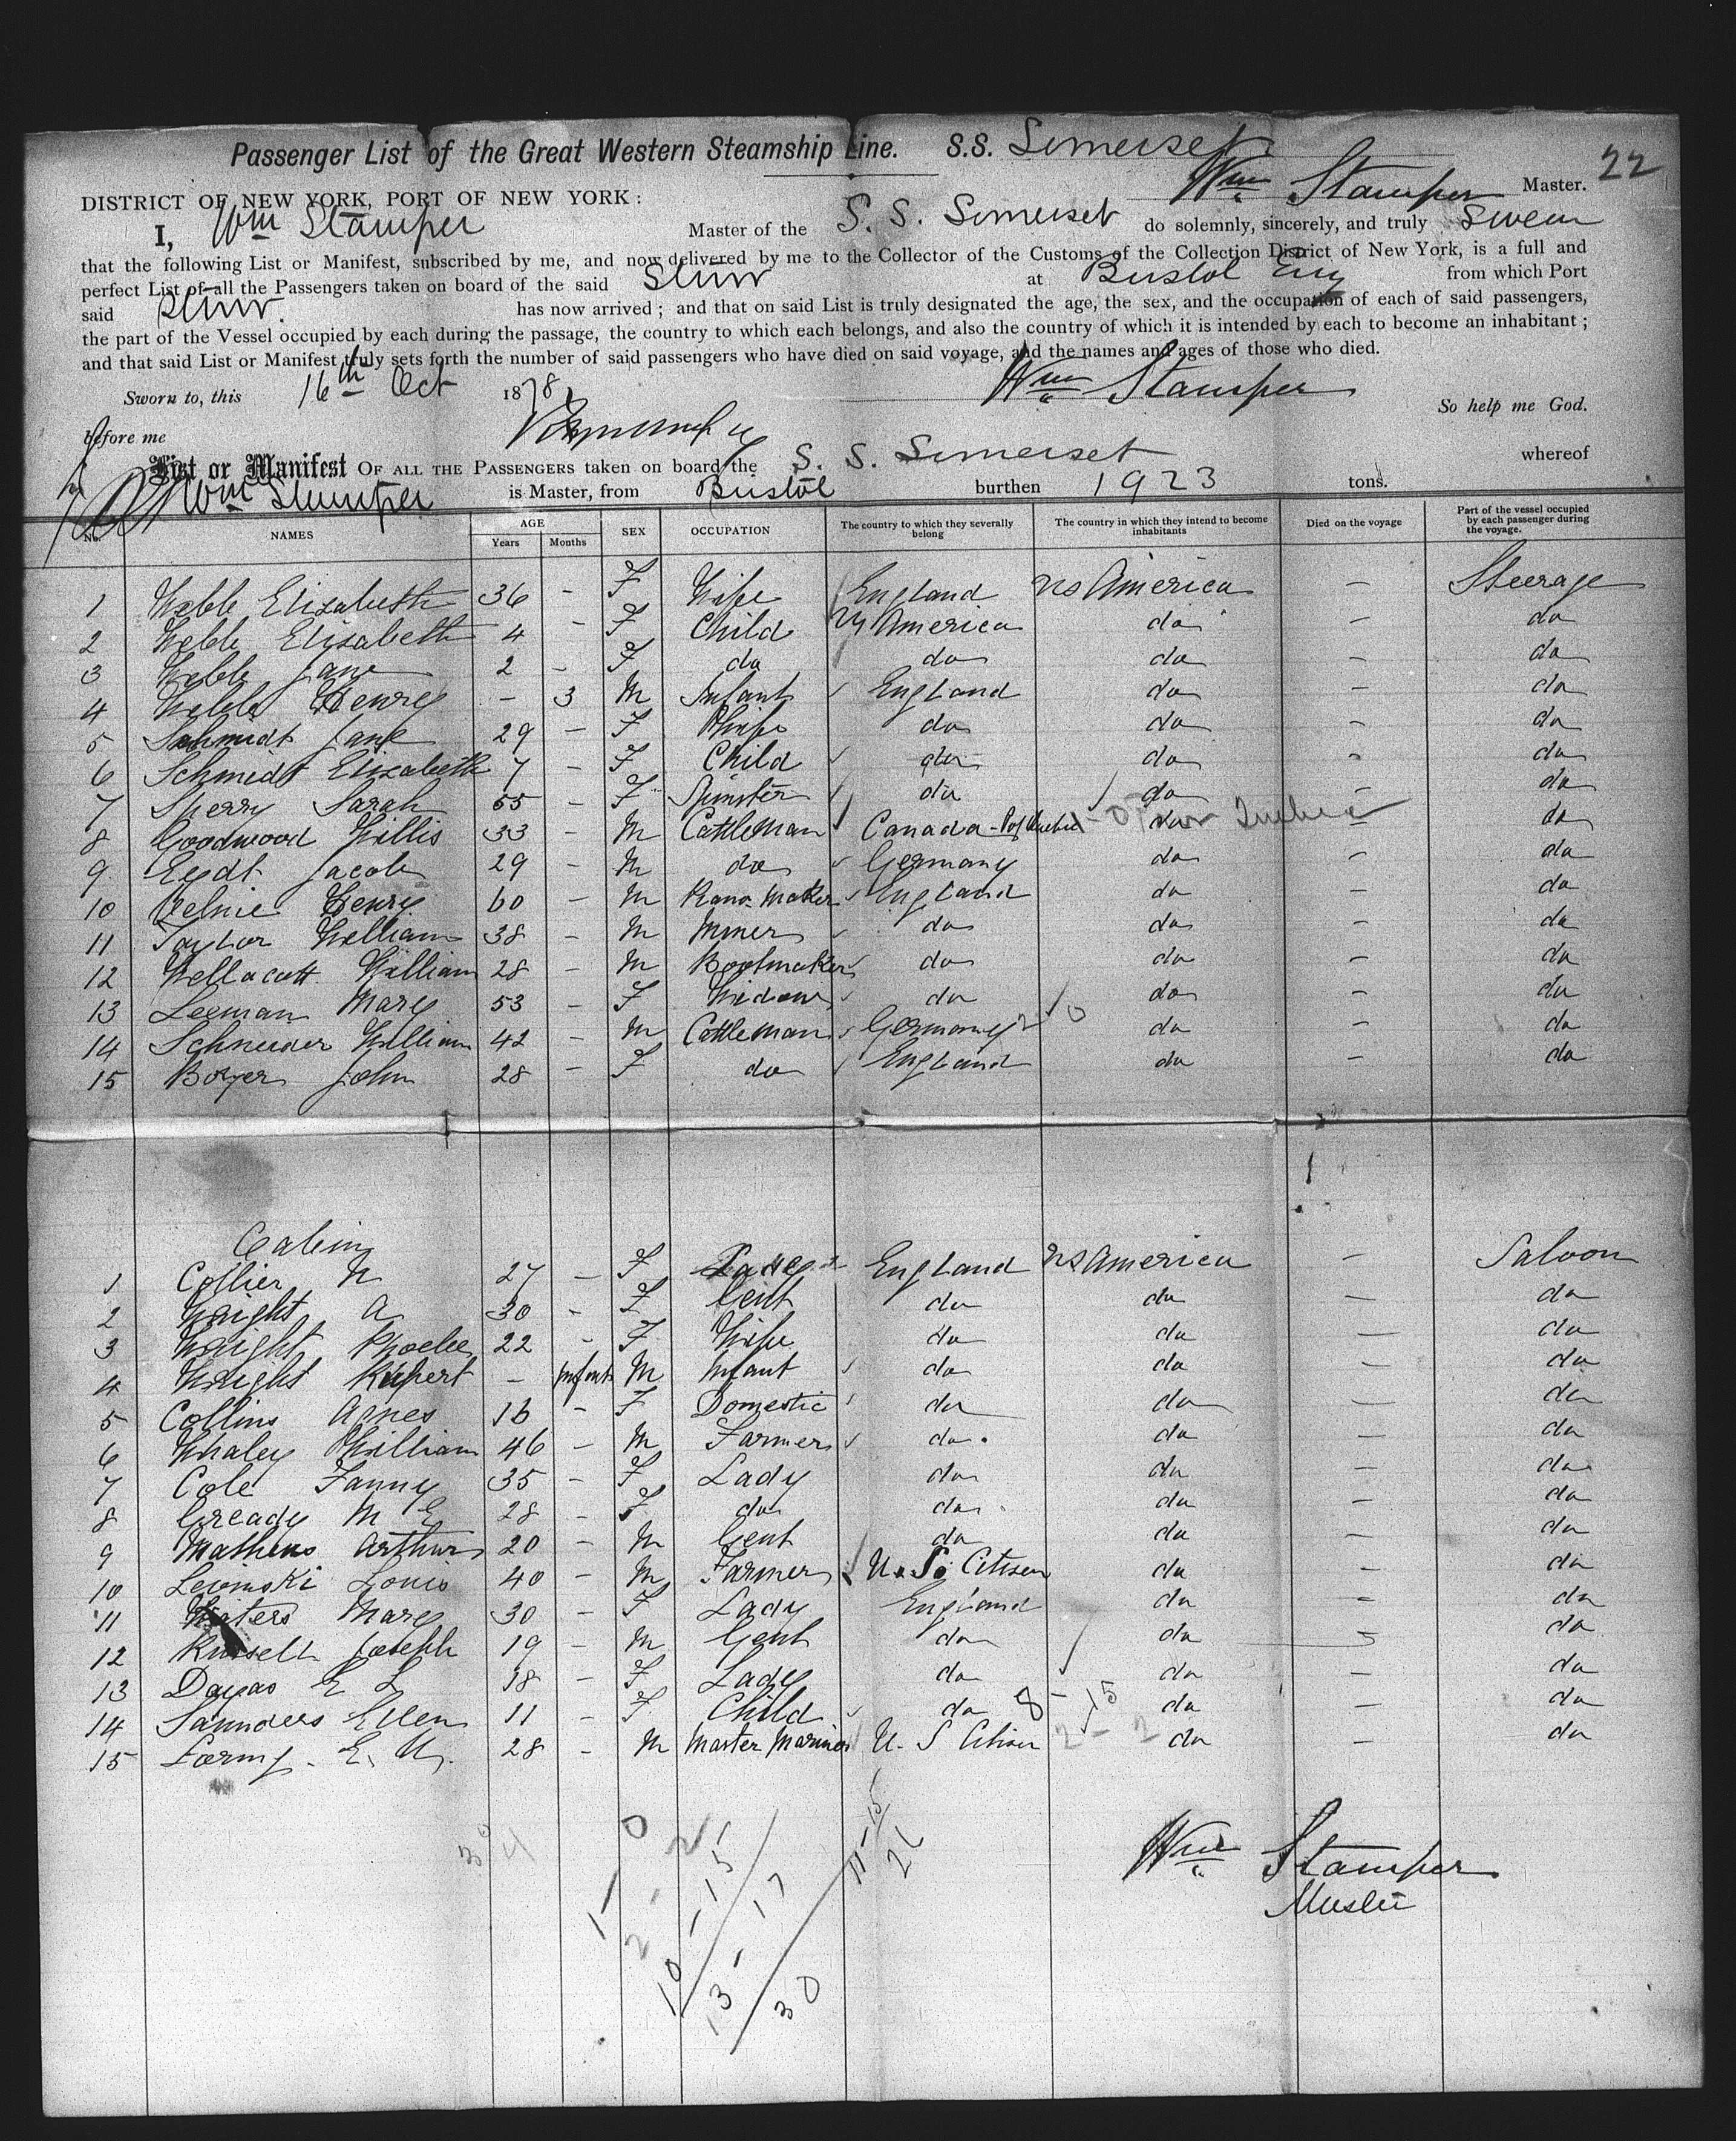 Passenger List of the Great Western Steamship Line. S.S. Somerset
22
Wm Stamper Master.
DISTRICT OF NEW YORK, PORT OF NEW YORK:
I, Wm Stamper Master of the S. S. Somerset do solemnly, sincerely, and truly Swear
that the following List or Manifest, subscribed by me, and now delivered by me to the Collector of the Customs of the Collection District of New York, is a full and
perfect List of all the Passengers taken on board of the said Stmr at Bristol Eng from which Port
said Stmr. has now arrived; and that on said List is truly designated the age, the sex, and the occupation of each of said passengers,
the part of the Vessel occupied by each during the passage, the country to which each belongs, and also the country of which it is intended by each to become an inhabitant;
and that said List or Manifest truly sets forth the number of said passengers who have died on said voyage, and the names and ages of those who died.
Sworn to, this 16th Oct 1878, Wm Stamper So help me God.
before me
List or Manifest OF ALL THE PASSENGERS taken on board the S. S. Somerset whereof
Wm Stamper is Master, from Bristol burthen 1923 tons.
No. NAMES AGE Years Months SEX OCCUPATION The country to which they severally belong The country in which they intend to become inhabitants Died on the voyage Part of the vessel occupied by each passenger during the voyage.
1 Webb Elizabeth 36 - F Wife England US America - Steerage
2 Webb Elizabeth 4 - F Child US America do - do
3 Webb Jane 2 - F do do do - do
4 Webb Henry - 3 M Infant England do - do
5 Schmidt Jane 29 - F Wife do do - do
6 Schmidt Elizabeth 7 - F Child do do - do
7 Sperry Sarah 55 - F Spinster do do - do
8 Goodwood Willis 33 - M Cattleman Canada do - do
9 Eydt Jacob 29 - M do Germany do - do
10 Henry 60 - M Piano Maker England do - do
11 Taylor William 38 - M Miner do do - do
12 Wellacott William 28 - M Bootmaker do do - do
13 Leeman Mary 53 - F Widow do do - do
14 Schneider William 42 - M Cattleman Germany do - do
15 Boyer John 28 - F do England do - do
Cabin
1 Collier N 27 - F Lady England US America - Saloon
2 Wright A 30 - F Gent do do - do
3 Wright Phoebe 22 - F Wife do do - do
4 Wright Rupert - Infant M Infant do do - do
5 Collins Agnes 16 - F Domestic do do - do
6 Whaley William 46 - M Farmer do do - do
7 Cole Fanny 35 - F Lady do do - do
8 Gready M E 28 - F do do do - do
9 Mathews Arthur 20 - M Gent do do - do
10 Lewinski Louis 40 - M Farmer U. S. Citizen do - do
11 Waters Mary 30 - F Lady England do - do
12 Russell Joseph 19 - M Gent do do - do
13 E L 18 - F Lady do do - do
14 Saunders Ellen 11 - F Child do do - do
15 E. 28 - M Master Mariner U. S Citizen do - do
Wm Stamper
Master